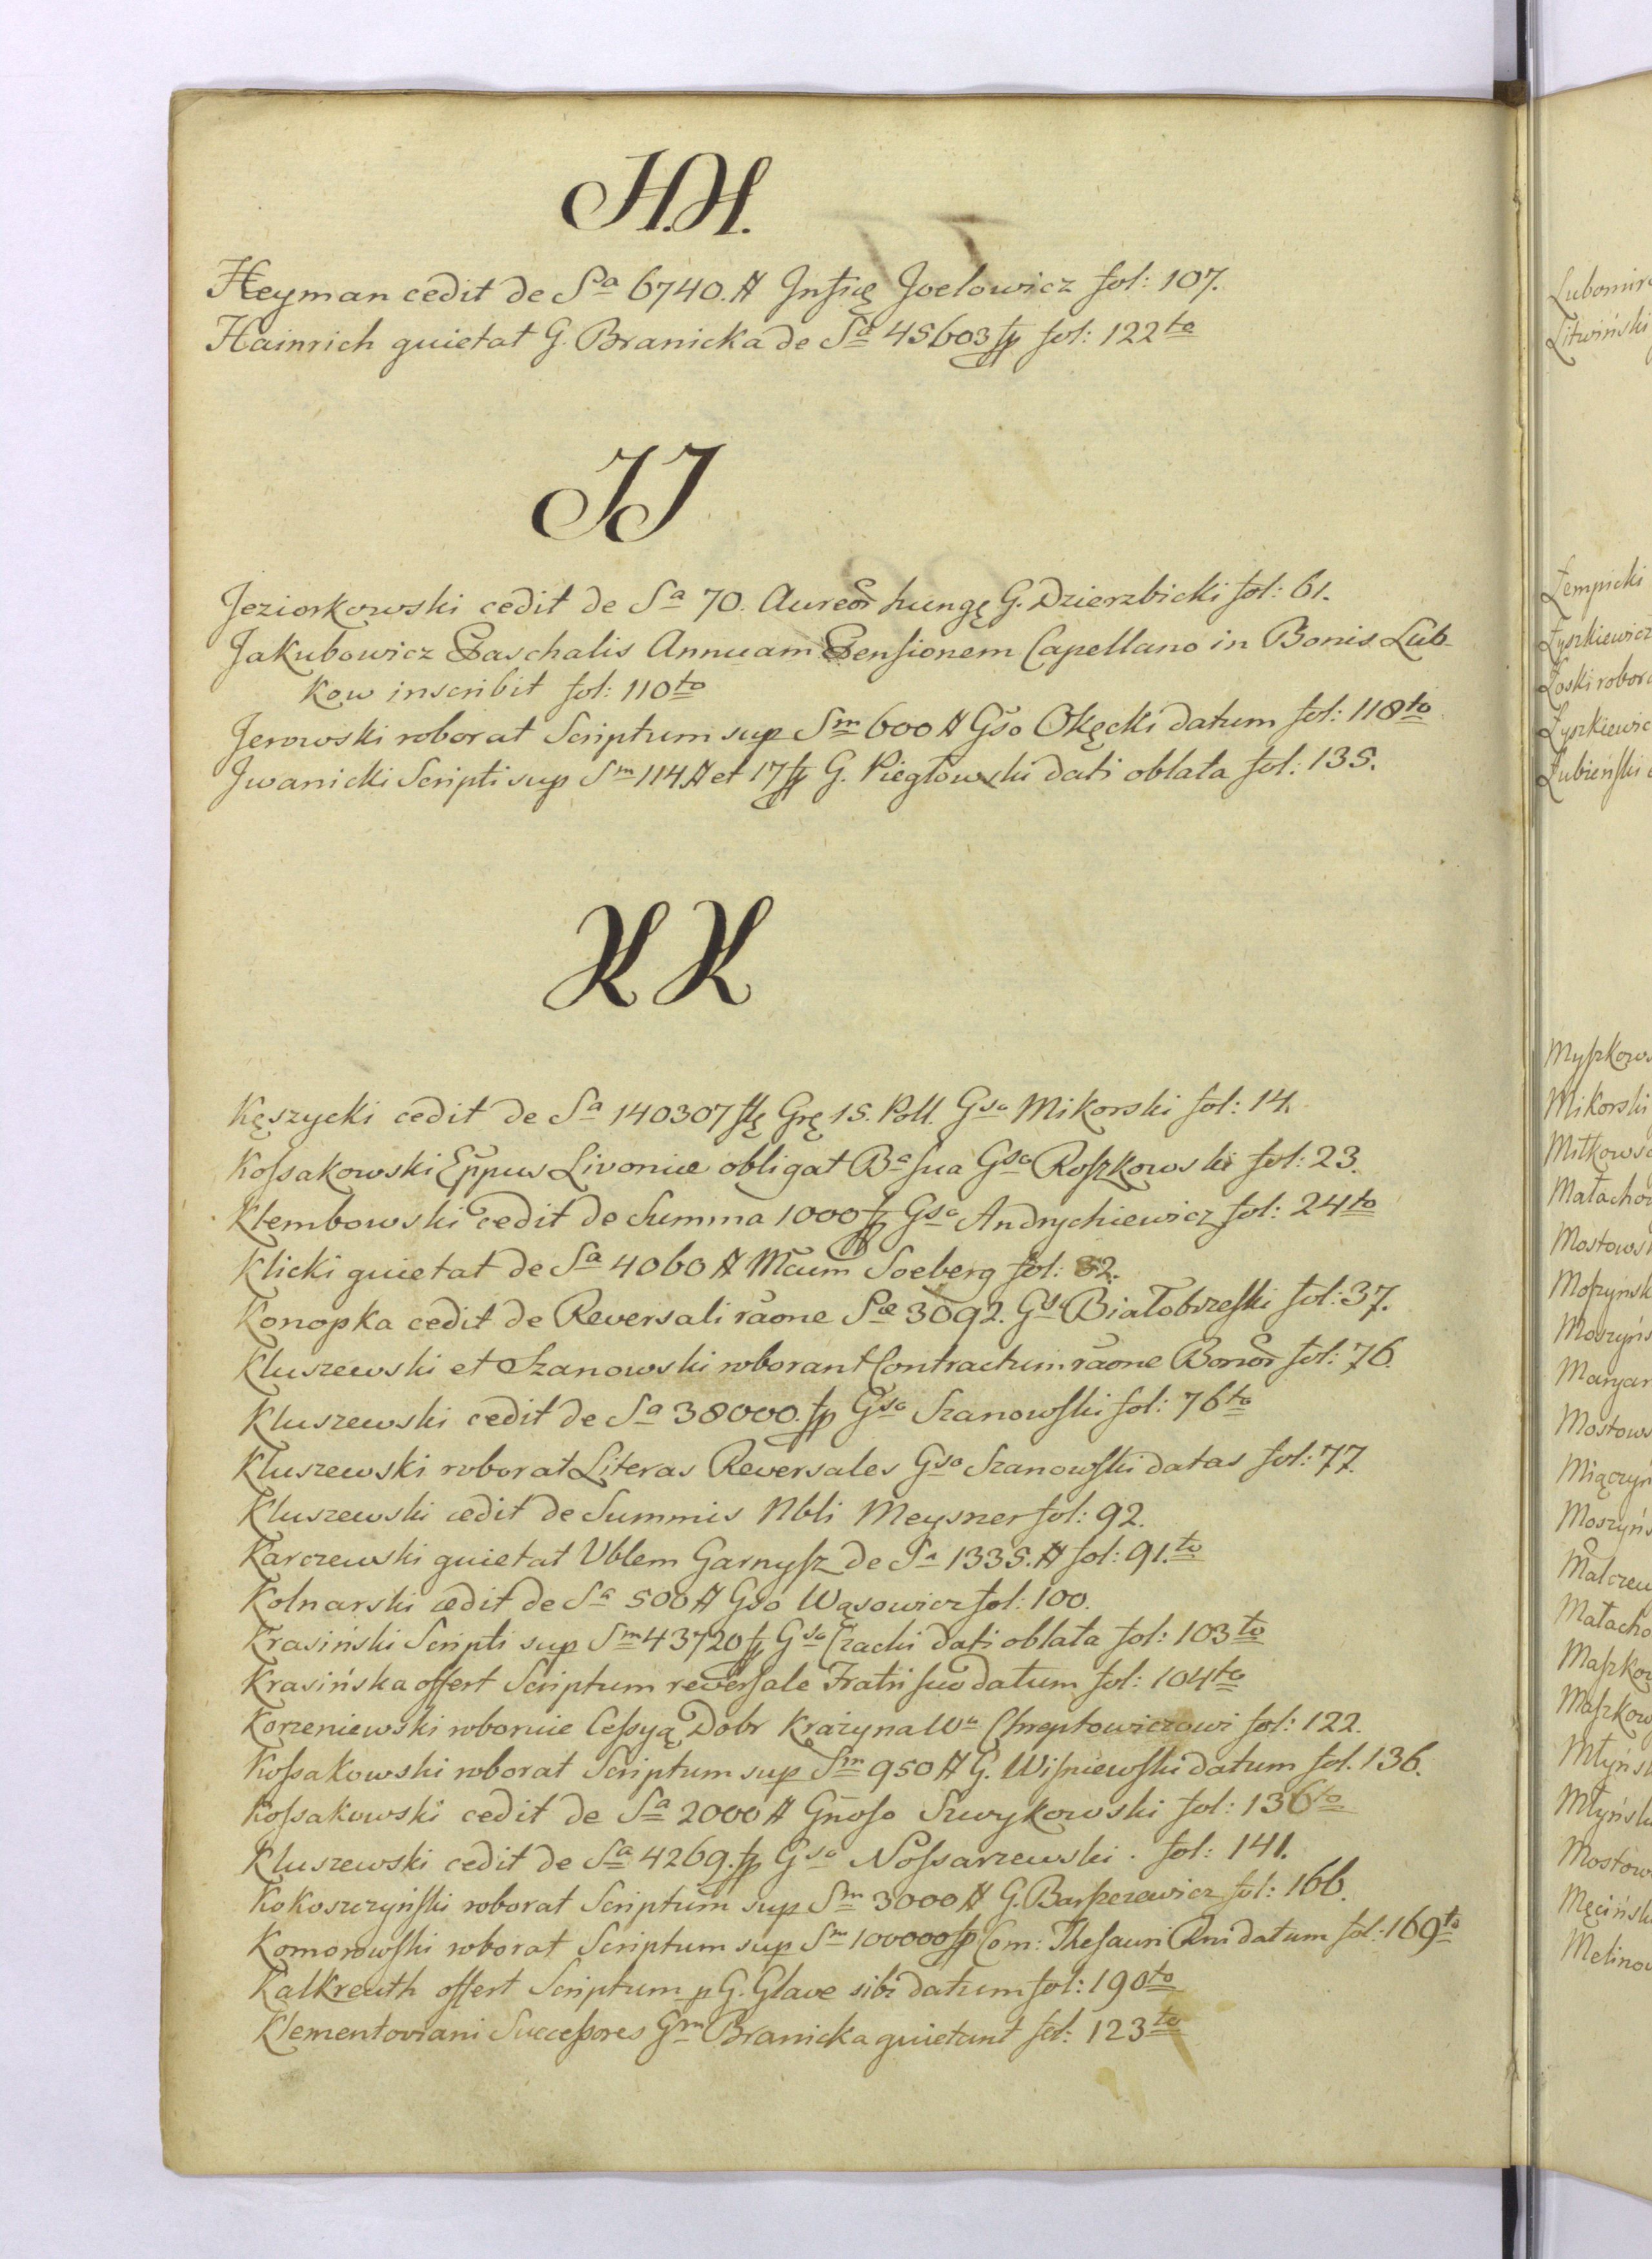 H.H.
Heyman cedit de Sa 6740. # Infię Joelowicz fol: 107.
Hainrich quietat G. Branicka de Sa 45603 fp fol: 122to
JJ
Jeziorkowski cedit de Sa 70. Aureor hungę G. Dzierzbicki fol: 61.
Jakubowicz Paschalis Annuam Pensionem Capellano in Bonis Lub-
kow inscribit fol: 110to
Jerowski roborat Scriptum sup Sm 600 # Gso Okęcki datum fol: 118to
Jwanicki Scripti sup Sm 114 # et 17 fp G. Piegłowski dati oblata fol: 135.
KK
Kęszycki cedit de Sa 140307 flę Grę 15. Poll. Gso Mikorski fol: 14.
Kossakowski Eppus Livoniæ obligat Ba sua Gso Roszkowski fol: 23.
Klembowski cedit de Summa 1000 fp Gso Andrychiewicz fol: 24to
Klicki quietat de Sa 4060 # Mcum Soeberg fol: 32.
Konopka cedit de Reversali raone Sæ 3092. Gso Białobrzeski fol: 37.
Kluszewski et Szanowski roborant Contractum raone Bonor fol: 76.
Kluszewski cedit de Sa 38000. fp Gso Szanowski fol: 76to
Kluszewski roborat Literas Reversales Gso Szanowski datas fol: 77.
Kluszewski cedit de Summis Nbli Meysner fol: 92.
Karczewski quietat Vblem Garnysz de Sa 1335. # fol: 91.to
Kolnarski cedit de Sa 500 # Gso Wąsowicz fol: 100.
Krasiński Scripti sup Sm 43720 fp Gso Czacki dati oblata fol: 103to
Krasińska offert Scriptum reversale Fratri suo datum fol: 104to
Korzeniewski roboruie Cessyą Dobr Krażyna Wu Chreptowiczowi fol: 122.
Kossakowski roborat Scriptum sup Sm 950 # G. Wiśniewski datum fol. 136.
Kossakowski cedit de Sa 2000 # Gnoso Szwykowski fol: 136to
Kluszewski cedit de Sa 4269. fp Gso Nossarzewski. fol: 141.
Kokoszczyński roborat Scriptum sup Sm 3000 # G. Barszczewicz fol: 166.
Komorowski roborat Scriptum sup Sm 100000 fp Com: Thesauri Rni datum fol: 169to
Kalkreuth offert Scriptum p G. Glave sibi datum fol: 190to
Klementoviani Successores Gm Branicka quietant fol: 123to
Litwiński
Łempicki
Łyszkiewicz
Mikorski